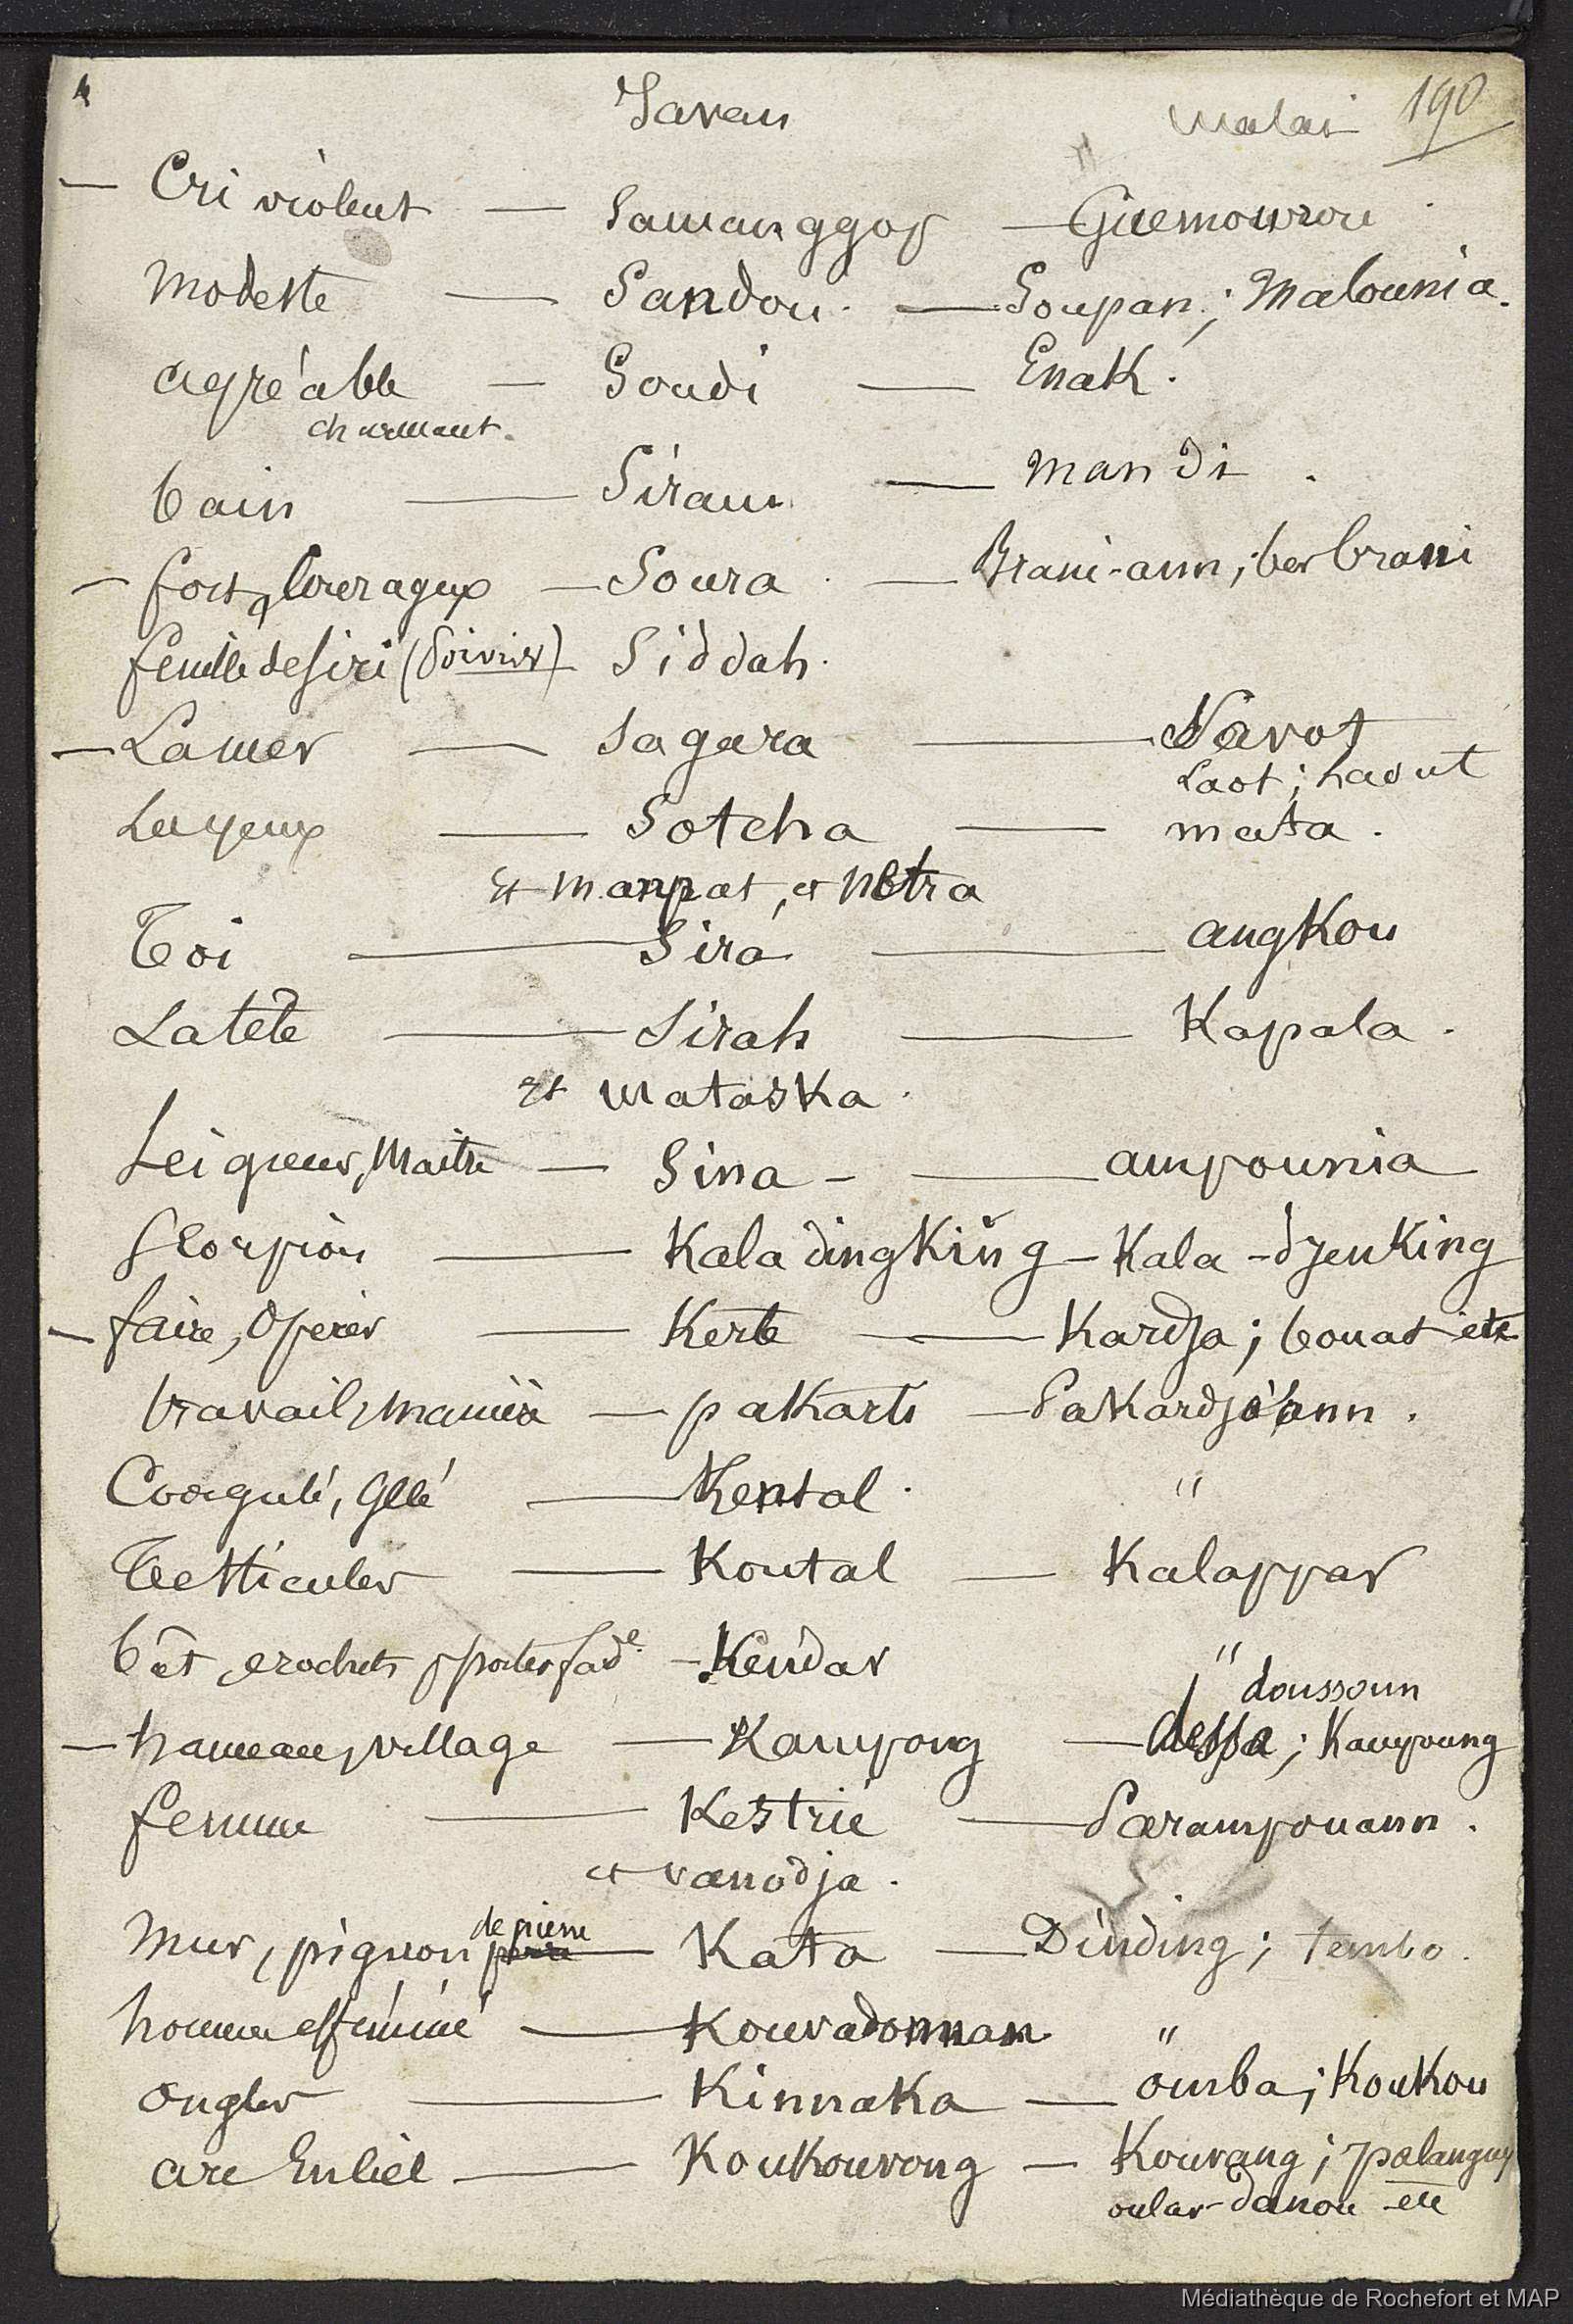 4 Javan Malai 190
— Cri violent — Samanggop — Guemourou
Modeste — Sandou — Soupan; Malounia.
agréable — Soudi — Enak.
charmant.
bain — Siram — mandi.
— fort, Courageux — Soura — Brani-ann; ber brani
feuille de Siri (Poivrier) Siddah.
— La mer — Sagara —
Laot; haout
Les yeux — Sotcha — mata.
et manpat, et Netra
Toi — Sira — angkou
La tête — Sirah — Kapala.
et mataska.
Seigneur, Maitre — Sina — ampounia
Scorpion — Kala dingking — Kala-djenking
— faire, Opérer — Kerte — Kardja; bouat etc
travail, manière — pakarti — Pakardja'ann.
Coagulé, Gelé — Kental. "
Testicules — Kontal — Kalappar
bât, crochets p. porter fard.e — Kendar "
doussoun
— hameau, village — Kampong — dessa; Kampoung
femme — Kestrie — Parampouann.
et vanodja.
de pierre
Mur, pignon — Kata — Dinding; tembo.
homme efféminé — Kouvadonnan "
ongles — Kinnaka — oumba; Koukou
arc En Ciel — Koukouvong — Kouvang; palanguy
oular-danou etc
Médiathèque de Rochefort et MAP